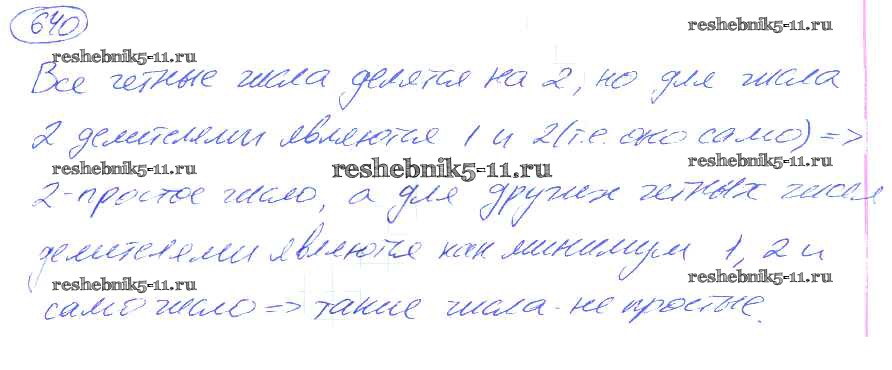 640
reshebnik5-11.ru
reshebnik5-11.ru
Все четные числа делятся на 2, но для числа
2 делителями являются 1 и 2 (т.е. оно само) =>
reshebnik5-11.ru reshebnik5-11.ru reshebnik5-11.ru
2 - простое число, а для других четных чисел
делителями являются как минимум 1, 2 и
reshebnik5-11.ru reshebnik5-11.ru
само число => такие числа - не простые.